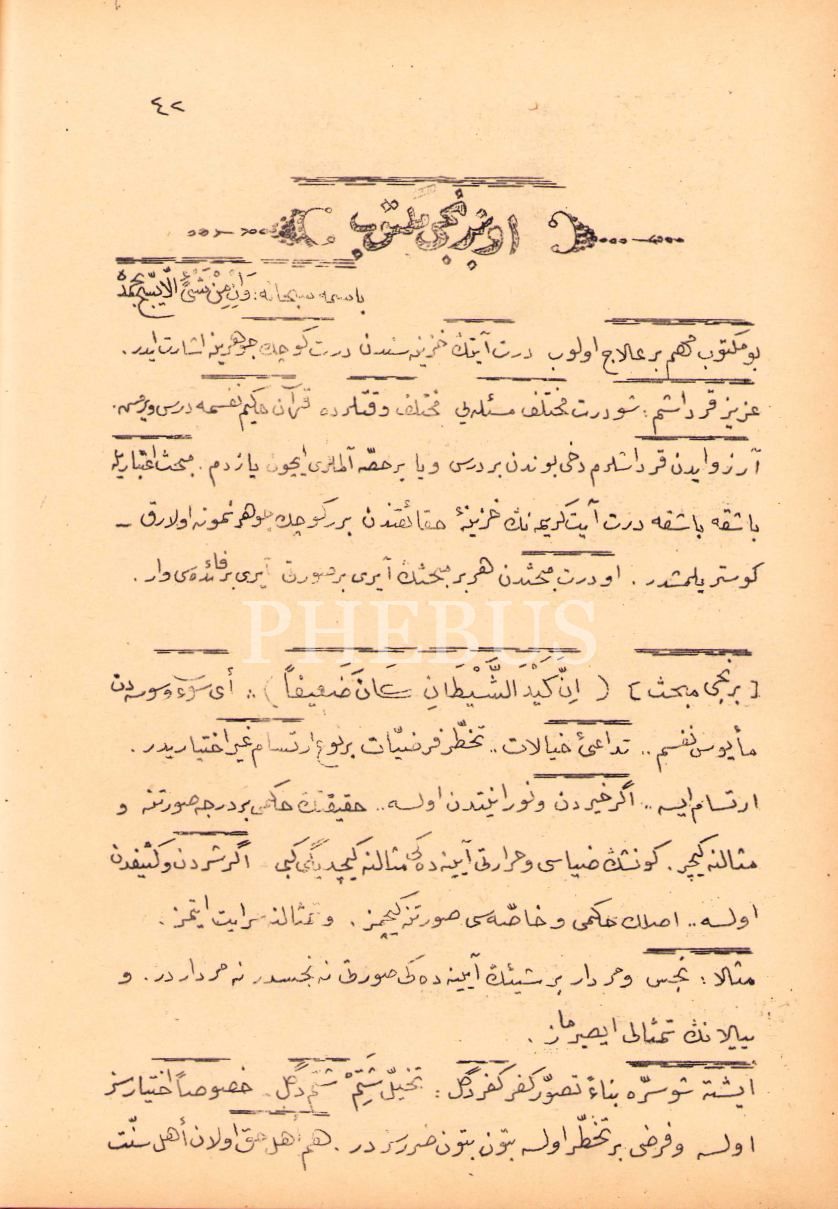 ٤٢
اون برنجی مكتوب
باسمه سبحانه : وَاِنْ مِنْ شَیْءٍ اِلَّا یُسَبِّحُ بِحَمْدِهٖ
بو مكتوب مهم بر علاج اولوب درت آیتڭ خزینه سندن درت كوچك جوهرینه اشارت ایدر .
عزیز قرداشم : شو درت مختلف مسئله یی مختلف وقتلرده قرآن حكیم نفسمه درس ویرمش .
آرزو ایدن قرداشلرم دخی بوندن بر درس و یا بر حصّه آلملری ایچون یازدم . مبحث اعتباریله
باشقه باشقه درت آیت كریمه نڭ خزینۀ حقائقندن برر كوچك جوهر نمونه اولارق –
كوستریلمشدر . او درت مبحثدن هر بر مبحثڭ آیری بر صورتی آیری بر فائده سی وار .
PHEBUS
[ برنجی مبحث ] ( اِنَّ كَیْدَ الشَّیْطَانِ كَانَ ضَعِیفًا ) .. أی سوء وسوسه دن
مأیوس نفسم .. تداعئ خیالات .. تخطّر فرضیّات بر نوع ارتسام غیر اختیاریدر .
ارتسام ایسه .. اگر خیردن و نورانیتدن اولسه .. حقیقتڭ حكمی بر درجه صورتنه و
مثالنه كیچر . كونشڭ ضیاسی و حرارتی آیینه ده كی مثالنه كیچدیگی كبی . اگر شردن و كثیفدن
اولسه .. اصلڭ حكمی و خاصّه سی صورتنه كیچمز . و تمثالنه سرایت ایتمز .
مثلا : نجس و مردار بر شیئڭ آیینه ده كی صورتی نه نجسدر نه مرداردر . و
ییلانڭ تمثالی ایصیرماز .
ایشته شو سرّه بناءً تصوّر كفر كفر دگل : تخیّل شَتِمْ شتم دگل . خصوصاً اختیارسز
اولسه و فرضی بر تخطّر اولسه بتون بتون ضررسزدر . هم أهل حق اولان أهل سنّت